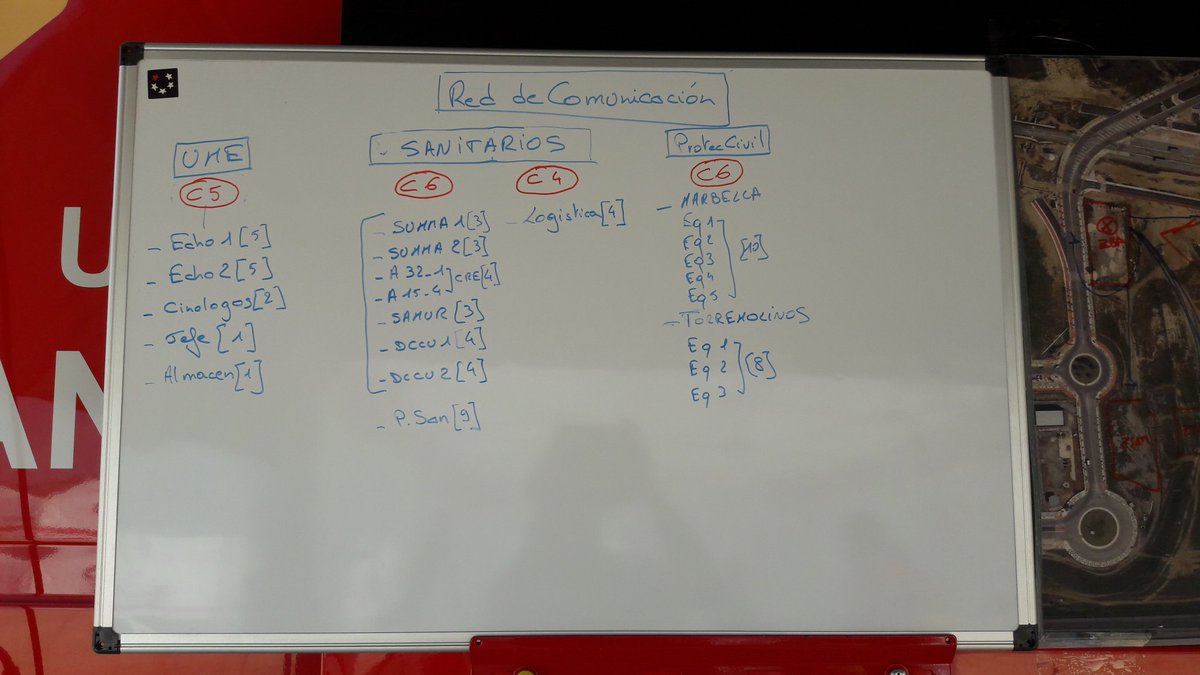 Red de Comunicación
UME
C5
- Echo 1 [5]
- Echo 2 [5]
- Cinologos [2]
- Jefe [1]
- Almacen [1]
- SANITARIOS
C6
- SUMMA 1 [3]
- SUMMA 2 [3]
- A 32-1
- A 15-4
CRE [4]
- SAMUR [3]
- DCCU 1 [4]
- DCCU 2 [4]
- P. San [9]
C4
- Logistica [4]
Protec Civil
C6
- MARBELLA
Eq 1
Eq 2
Eq 3
Eq 4
Eq 5
[10]
- TORREMOLINOS
Eq 1
Eq 2
Eq 3
[8]
U
AN